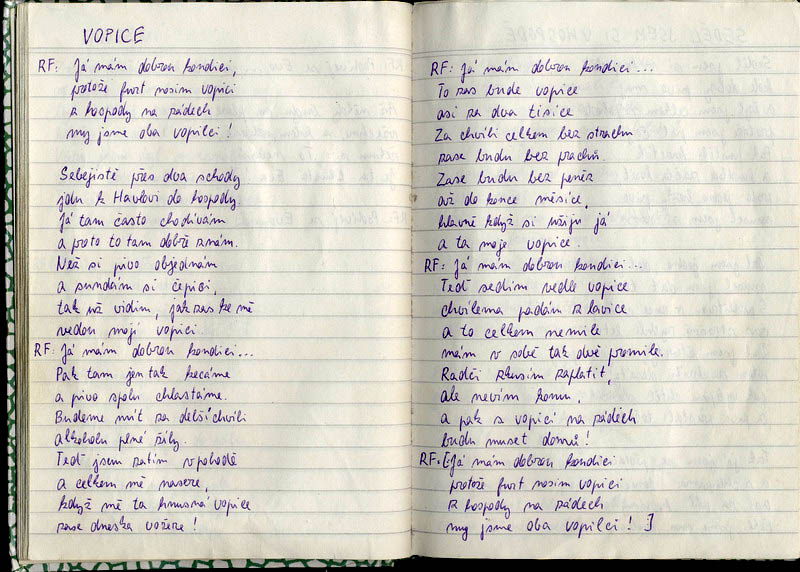 VOPICE
RF: Já mám dobrou kondici,
protože furt nosim vopici
z hospody na zádech
my jsme oba vopilci!
Sebějistě přes dva schody
jdu k Havlovi do hospody.
Já tam často chodívám
a proto to tam dobře znám.
Než si pivo objednám
a sundám si čepici,
tak už vidim, jak zas ke mě
vedou moji vopici.
RF: Já mám dobrou kondici...
Pak tam jen tak kecáme
a pivo spolu chlastáme.
Budeme mít za delší chvíli
alkoholu plné žíly.
Teď jsem zatim vpohodě
a celkem mě nasere,
když mě ta hnusná vopice
zase dneska vožere!
RF: Já mám dobrou kondici...
To zas bude vopice
asi za dva tisíce
Za chvíli celkem bez strachu
zase budu bez prachů.
Zase budu bez peněz
až do konce měsíce,
hlavně když si užiju já
a ta moje vopice.
RF: Já mám dobrou kondici...
Teď sedim vedle vopice
chvílema padám z lavice
a to celkem nemile
mám v sobě tak dvě promile.
Radči zkusim zaplatit,
ale nevim komu,
a pak s vopicí na zádech
budu muset domů!
RF: [Já mám dobrou kondici
protože furt nosim vopici
z hospody na zádech
my jsme oba vopilci! ]